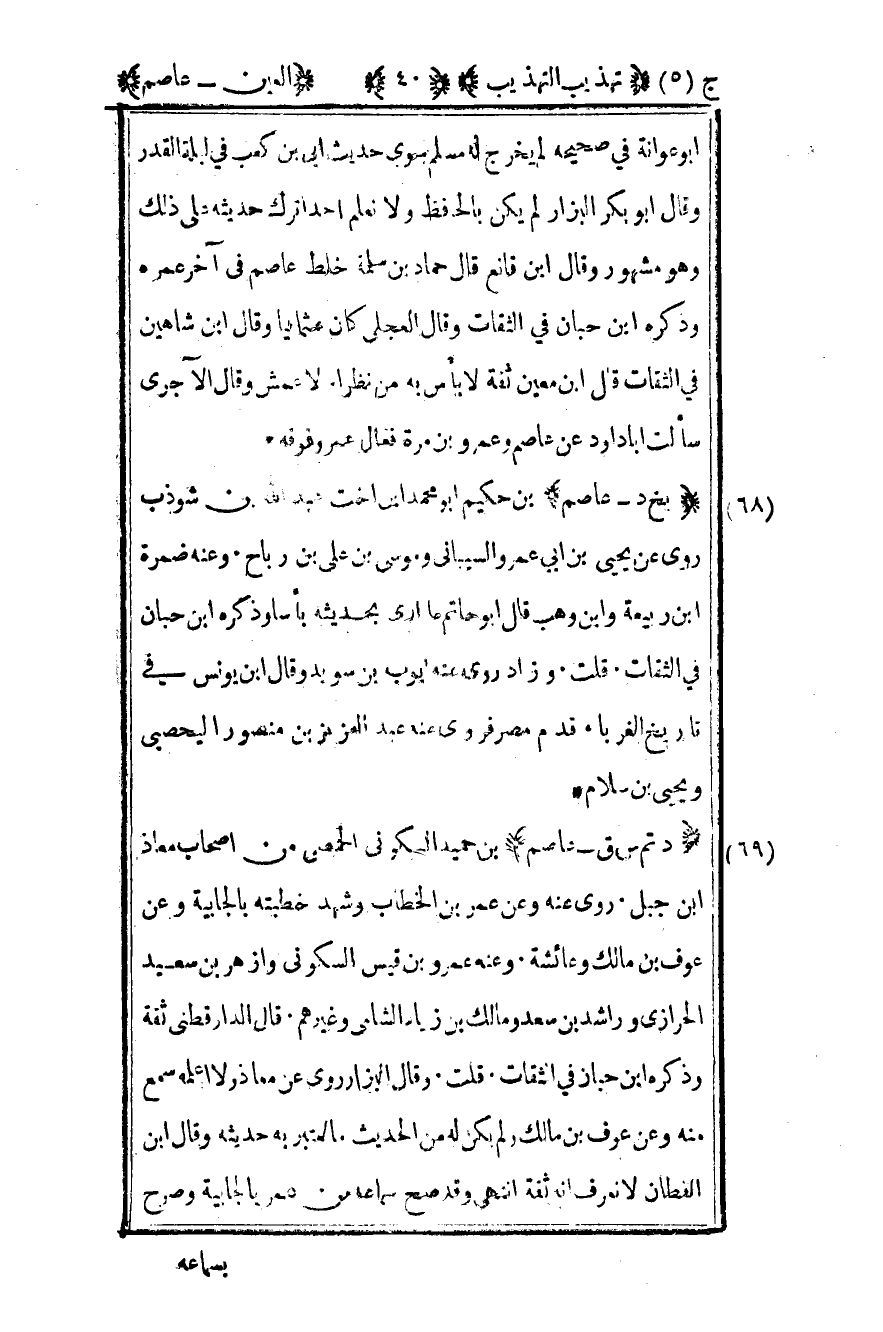 ج (٥) ﴿ تهذيب التهذيب ﴾ ﴿ ٤٠ ﴾ ﴿ العين ـ عاصم ﴾
ابو عوانة في صحيحه لم يخرج له مسلم سوى حديث ابى بن كعب في ليلة القدر
وقال ابو بكر البزار لم يكن بالحافظ ولا نعلم احدا ترك حديثه على ذلك
وهو مشهور وقال ابن قانع قال حماد بن سلمة خلط عاصم فى آخر عمره
وذكره ابن حبان في الثقات وقال العجلى كان عثمانيا وقال ابن شاهين
في الثقات قال ابن معين ثقة لا بأس به من نظراء الاعمش وقال الآجرى
سألت ابا داود عن عاصم وعمرو بن مرة فقال عمرو فوقه ٠
(٦٨) ﴿ بخ د ـ عاصم ﴾ بن حكيم ابو محمد ابن اخت عبد الله بن شوذب
روى عن يحيى بن ابي عمرو السيبانى وموسى بن على بن رباح ٠ وعنه ضمرة
ابن ربيعة وابن وهب قال ابو حاتم ما ارى بحديثه بأسا وذكره ابن حبان
في الثقات ٠ قلت ٠ وزاد روى عنه ايوب بن سويد وقال ابن يونس في
تاريخ الغرباء قدم مصر فروى عنه عبد العزيز بن منصور اليحصبى
ويحيى بن سلام ٠
(٦٩) ﴿ د تم س ق ـ عاصم ﴾ بن حميد السكونى الحمصى من اصحاب معاذ
ابن جبل ٠ روى عنه وعن عمر بن الخطاب وشهد خطبته بالجابية وعن
عوف بن مالك وعائشة ٠ وعنه عمرو بن قيس السكونى وازهر بن سعيد
الحرازى وراشد بن سعد ومالك بن زياد الشامى وغيرهم ٠ قال الدارقطنى ثقة
وذكره ابن حبان في الثقات ٠ قلت ٠ وقال البزار روى عن معاذ ولا اعلمه سمع
منه وعن عوف بن مالك ولم يكن له من الحديث ما نعتبر به حديثه وقال ابن
القطان لا نعرف انه ثقة انتهى وقد صح سماعه من عمر بالجابية وصرح
بسماعه